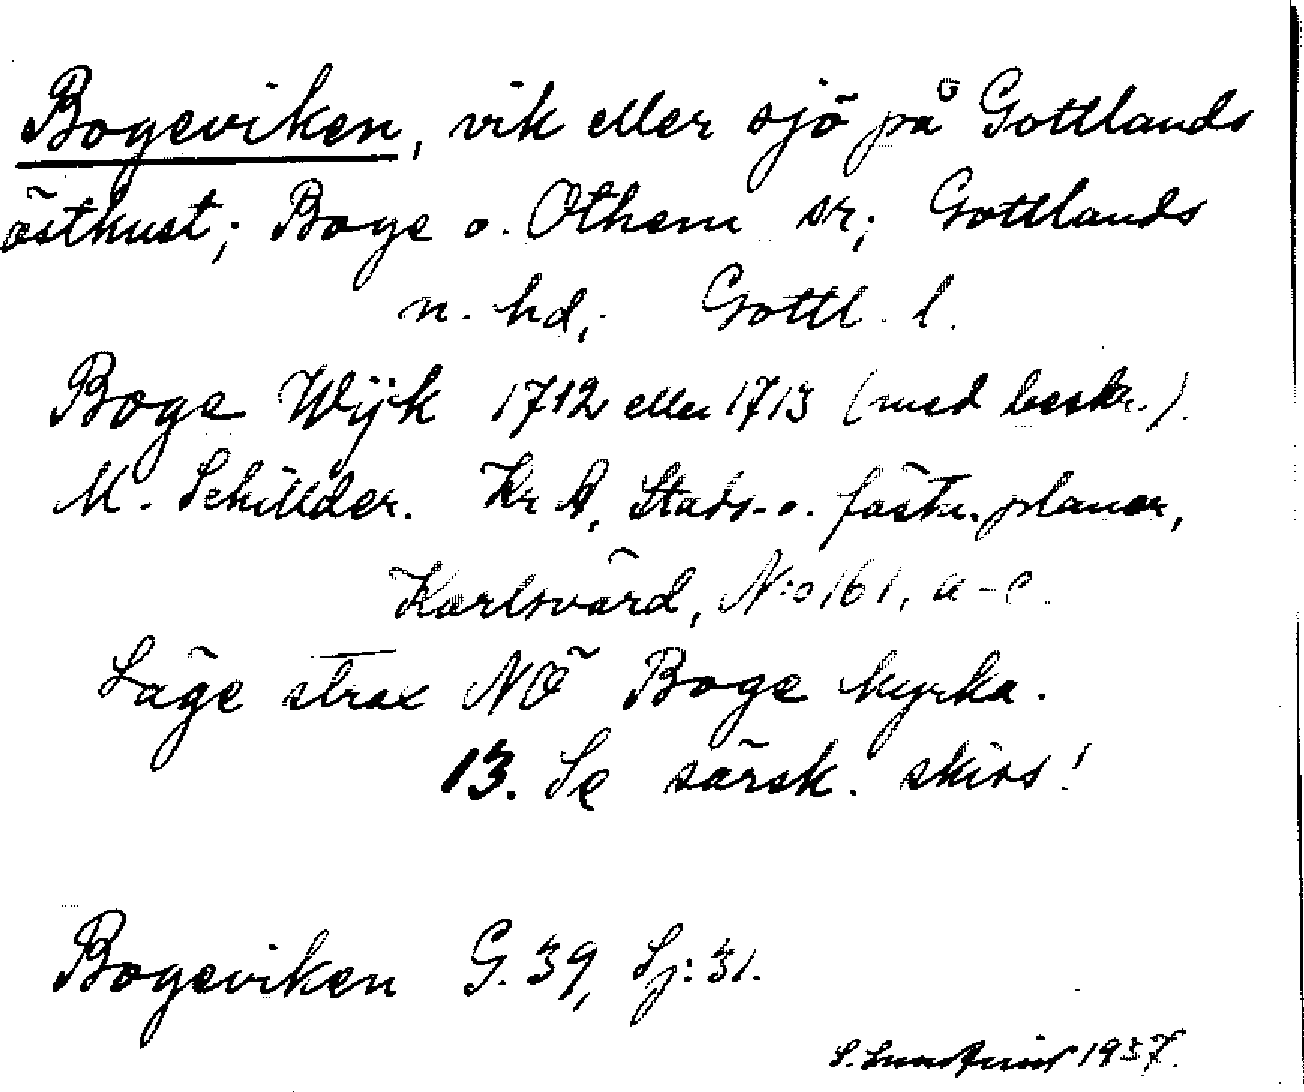 Bogeviken, vik eller sjö på Gottlands
östkust; Boge o. Othem sr; Gottlands
n. hd; Gottl. l.
Boge Wijk 1712 eller 1713 (med beskr.).
M. Schilder. Kr A, Stads- o. fästn. planer,
Karlsvärd, N:o 161, a-c.
Läge strax NÖ Boge kyrka.
13. Se särsk. skiss!
Bogeviken G. 39, Sj: 31.
1937.